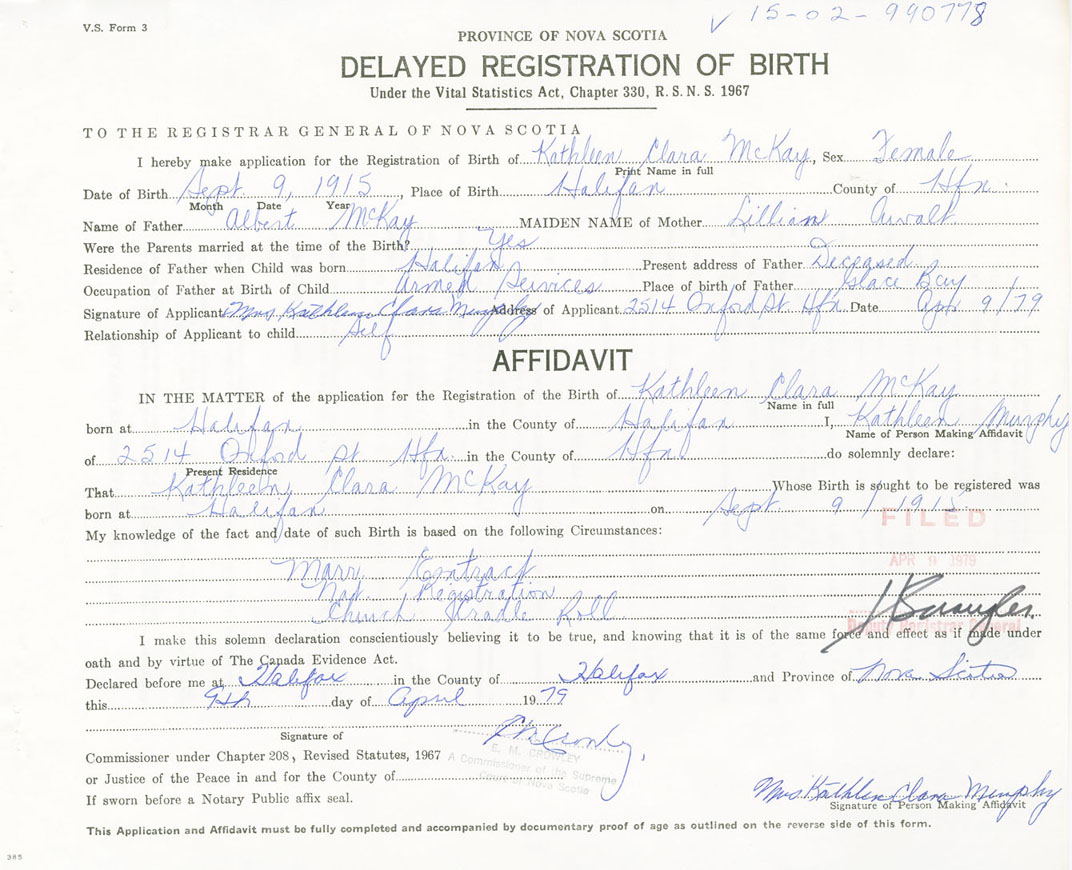 V.S. Form 3
✓ 15-02-990778
PROVINCE OF NOVA SCOTIA
DELAYED REGISTRATION OF BIRTH
Under the Vital Statistics Act, Chapter 330, R. S. N. S. 1967
TO THE REGISTRAR GENERAL OF NOVA SCOTIA
I hereby make application for the Registration of Birth of Kathleen Clara McKay, Sex Female
Print Name in full
Date of Birth Sept 9, 1915, Place of Birth Halifax County of Hfx.
Month Date Year
Name of Father Albert McKay MAIDEN NAME of Mother Lillian Awalt
Were the Parents married at the time of the Birth? Yes
Residence of Father when Child was born Halifax Present address of Father Deceased
Occupation of Father at Birth of Child Armed Services Place of birth of Father Glace Bay
Signature of Applicant Mrs Kathleen Clara Murphy Address of Applicant 2514 Oxford St Hfx Date Apr 9/79
Relationship of Applicant to child Self
AFFIDAVIT
IN THE MATTER of the application for the Registration of the Birth of Kathleen Clara McKay
Name in full
born at Halifax in the County of Halifax I, Kathleen Murphy
Name of Person Making Affidavit
of 2514 Oxford St Hfx in the County of Hfx do solemnly declare:
Present Residence
That Kathleen Clara McKay Whose Birth is sought to be registered was
born at Halifax on Sept 9 / 1915
FILED
My knowledge of the fact and date of such Birth is based on the following Circumstances:
APR 9 1979
Marr. Extract
Nat. Registration
Church Cradle Roll
Deputy Registrar General
I make this solemn declaration conscientiously believing it to be true, and knowing that it is of the same force and effect as if made under
oath and by virtue of The Canada Evidence Act.
Declared before me at Halifax in the County of Halifax and Province of Nova Scotia
this 9th day of April 1979
Signature of
E. M. CROWLEY
A Commissioner of the Supreme
Court of Nova Scotia
Commissioner under Chapter 208, Revised Statutes, 1967
or Justice of the Peace in and for the County of
If sworn before a Notary Public affix seal.
Mrs Kathleen Clara Murphy
Signature of Person Making Affidavit
This Application and Affidavit must be fully completed and accompanied by documentary proof of age as outlined on the reverse side of this form.
385